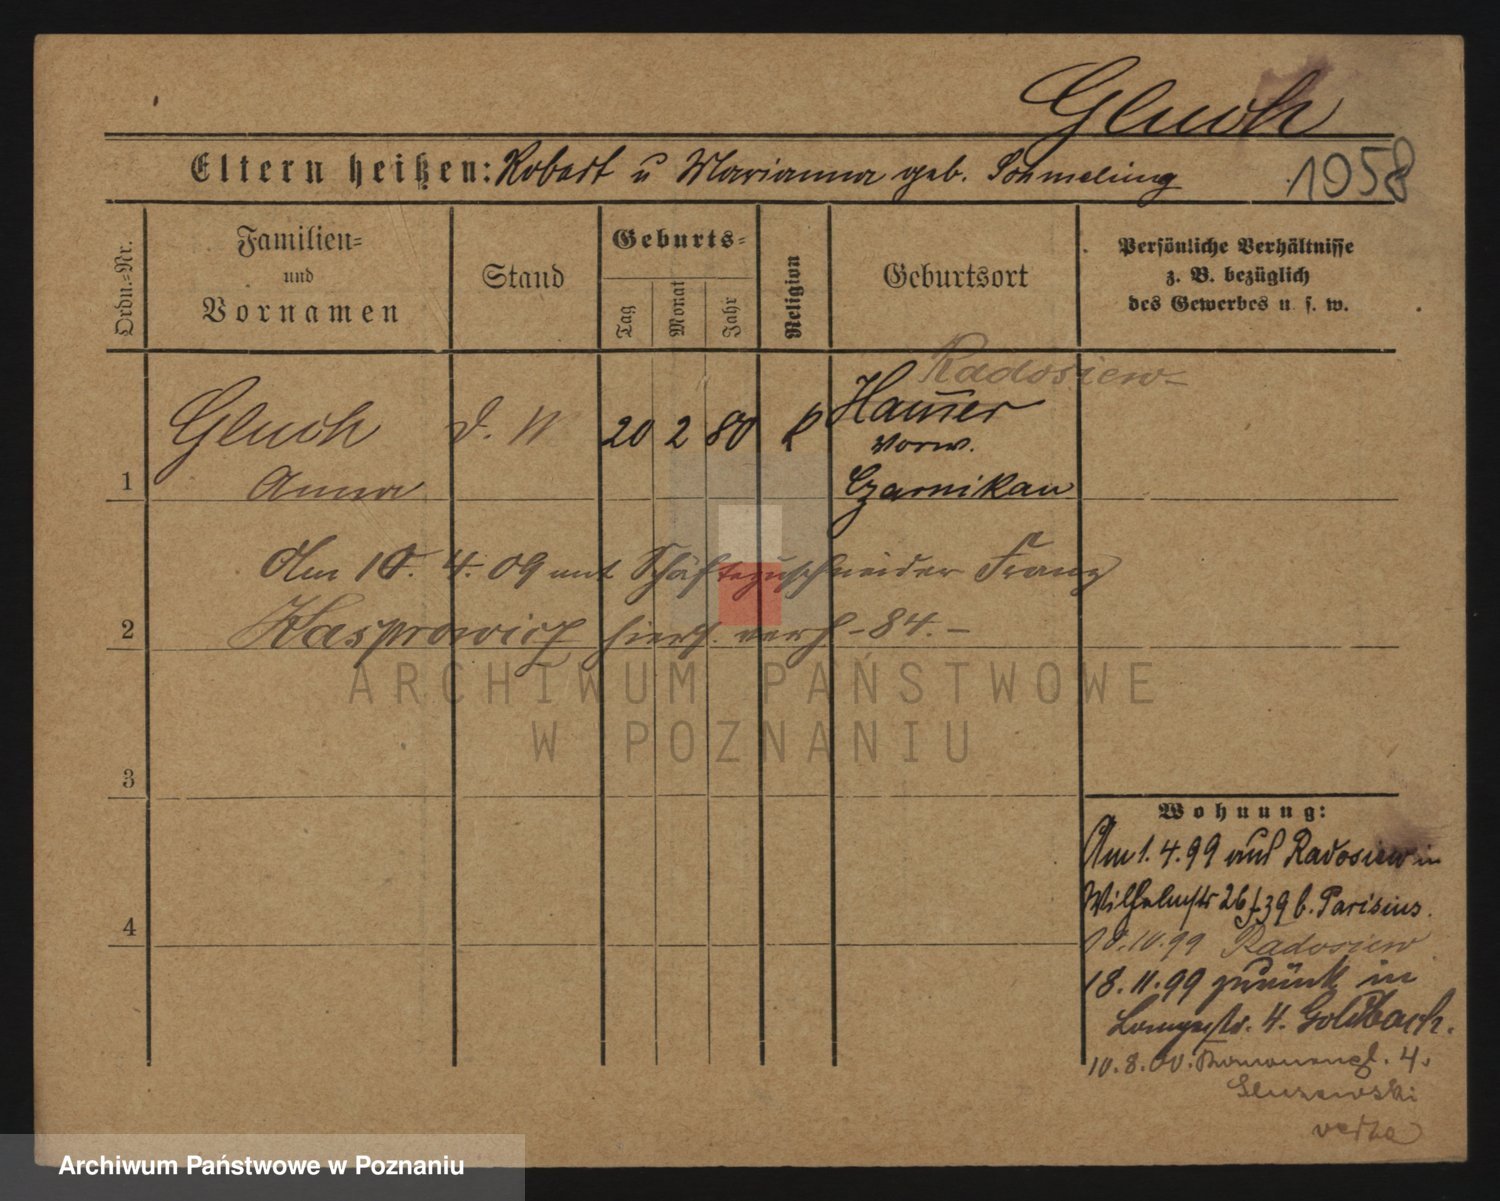 Gluch
Eltern heißen: Robert u Marianna geb. Schmeling
1958
Ordn.-Nr.
Familien-
und
Vornamen
Stand
Geburts-
Tag
Monat
Jahr
Religion
Geburtsort
Persönliche Verhältnisse
z. B. bezüglich
des Gewerbes u. s. w.
Radosiew
1
Gluch
Anna
d. M
20 2 80
k
Hammer
vorw.
Czarnikau
Am 10. 4. 09 mit Schäftezuschneider Franz
2
Kasprowicz hiers. verh -84.-
ARCHIWUM PAŃSTWOWE
W POZNANIU
3
4
Wohnung:
Am 1. 4. 99 aus Radosiew in
Wilhelmstr 26 39 b. Parisius.
10.10.99 Radosiew
18. 11. 99 zurück in
Langestr. 4. Goldbach.
10. 8. 00. 4.
Gluszewski
Archiwum Państwowe w Poznaniu